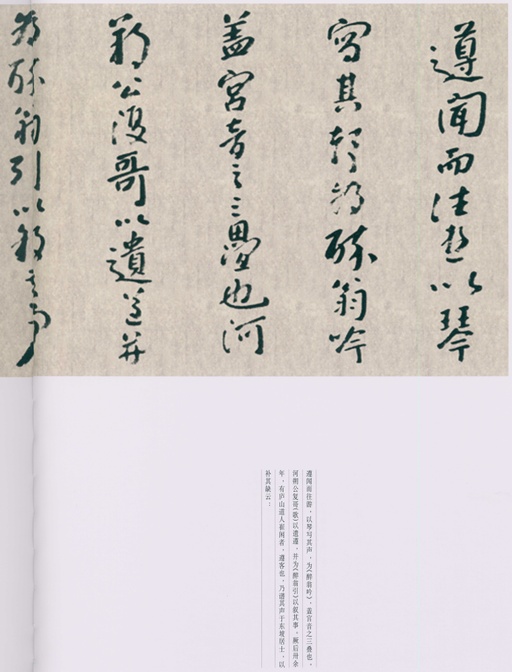 遵聞而往遊以琴
寫其聲為醉翁吟
盖宮音之三疊也河
朔公復哥以遺遵并
為醉翁引以叙其事
遵闻而往游，以琴写其声，为《醉翁吟》，盖宫音之三叠也。
河朔公复哥(歌)以遗遵，并为《醉翁引》以叙其事。厥后卅余
年，有庐山道人崔闲者，遵客也，乃谱其声于东坡居士，以
补其缺云：